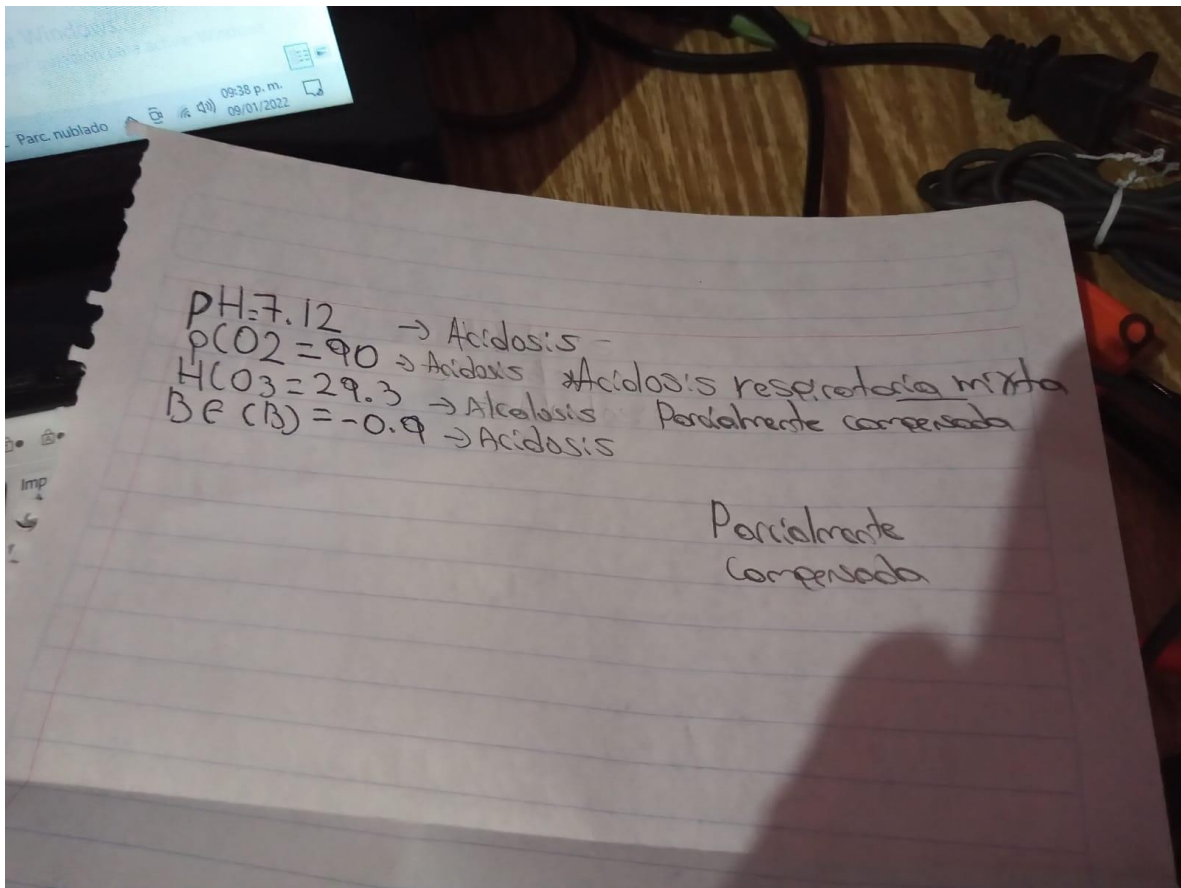 09:38 p. m.
Parc. nublado
09/01/2022
pH=7.12 → Acidosis -
pCO2 = 90 → Acidosis *Acidosis respiratoria mixta
HCO3 = 29.3 → Alcalosis Parcialmente compensada
BE (B) = -0.9 → Acidosis
Imp
Parcialmente
compensada